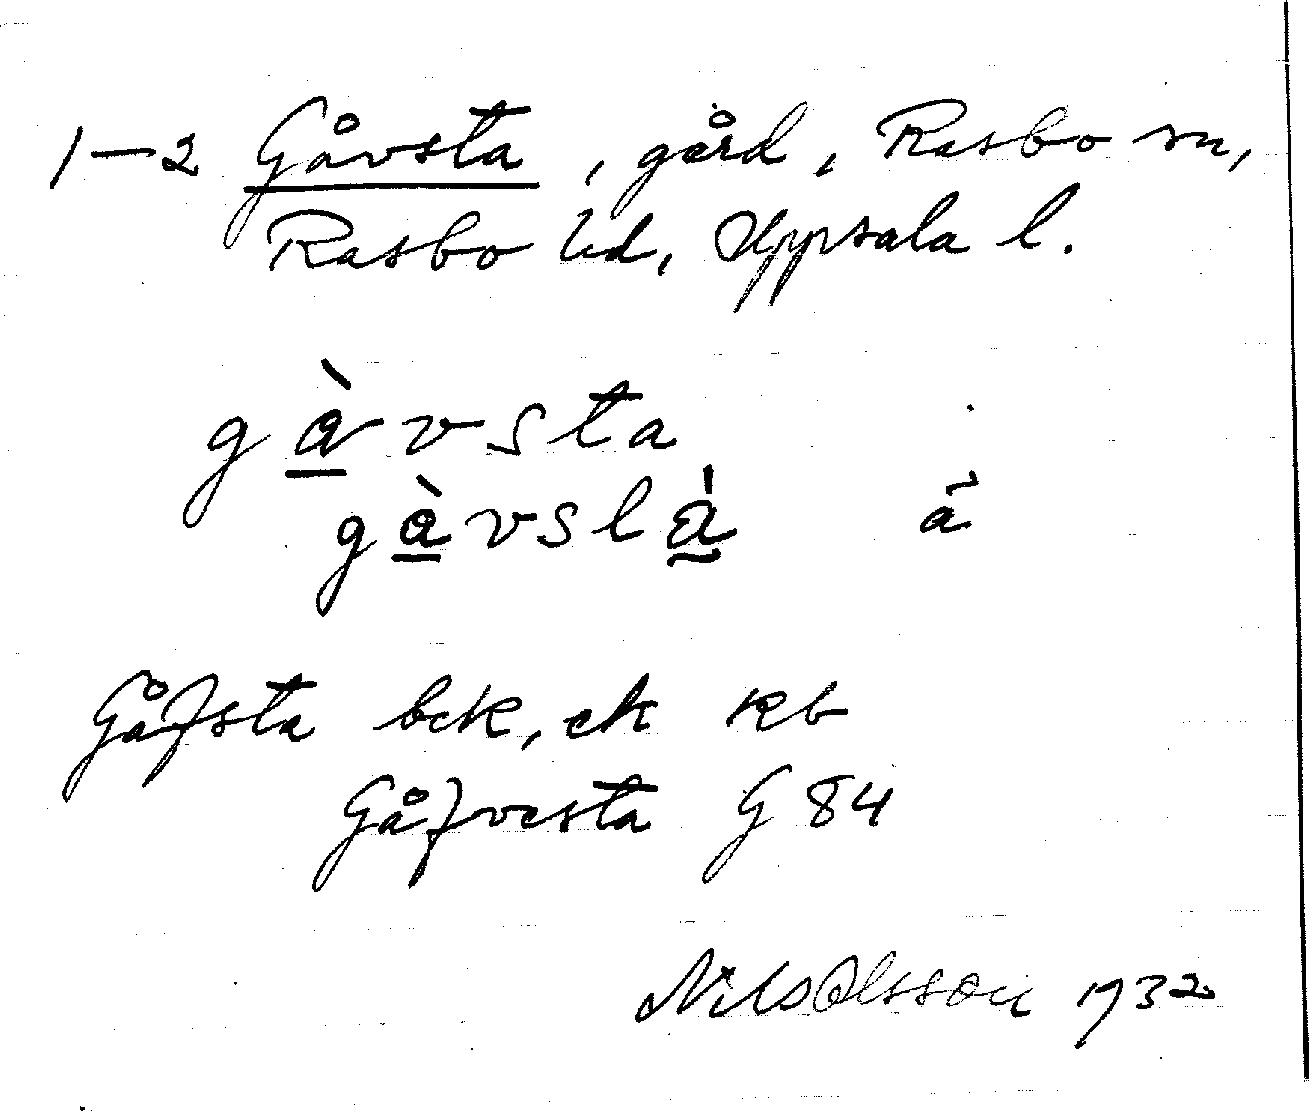 1–2 Gåvsta, gård, Rasbo sn,
Rasbo hd, Uppsala l.
gàvsta
gàvslà ã
Gåfsta bek, ek kb
Gåfvesta G 84
Nils Olsson 1932